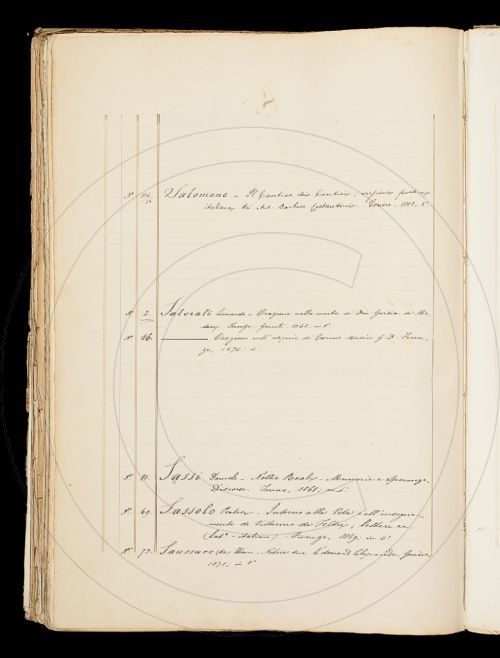 Salomone - Il Cantico dei Cantici, versione poetica
italiana di Barbara Torino, 1862. 8°
N° 2. Salviati Leonardo - Orazione nella morte di Don Garzia de' Me-
dici. Firenze, Giunti, in 4°
N° 16. Orazione nell' esequie di Cosimo Medici G. D. Firen-
ze, 4°
N° 10. Sassi Daniele - Notte Memorie e Speranze.
Discorso. Torino, 1861. in 4°
N° 69. Sassolo Intorno alla Vita e all' insegna-
mento di Vittorino da Feltre, lettere
italiano). Firenze, 1869. in 4°
N° 73. Saussure (de) Notice sur Edouard Claparède, Genève,
1871, in 8°